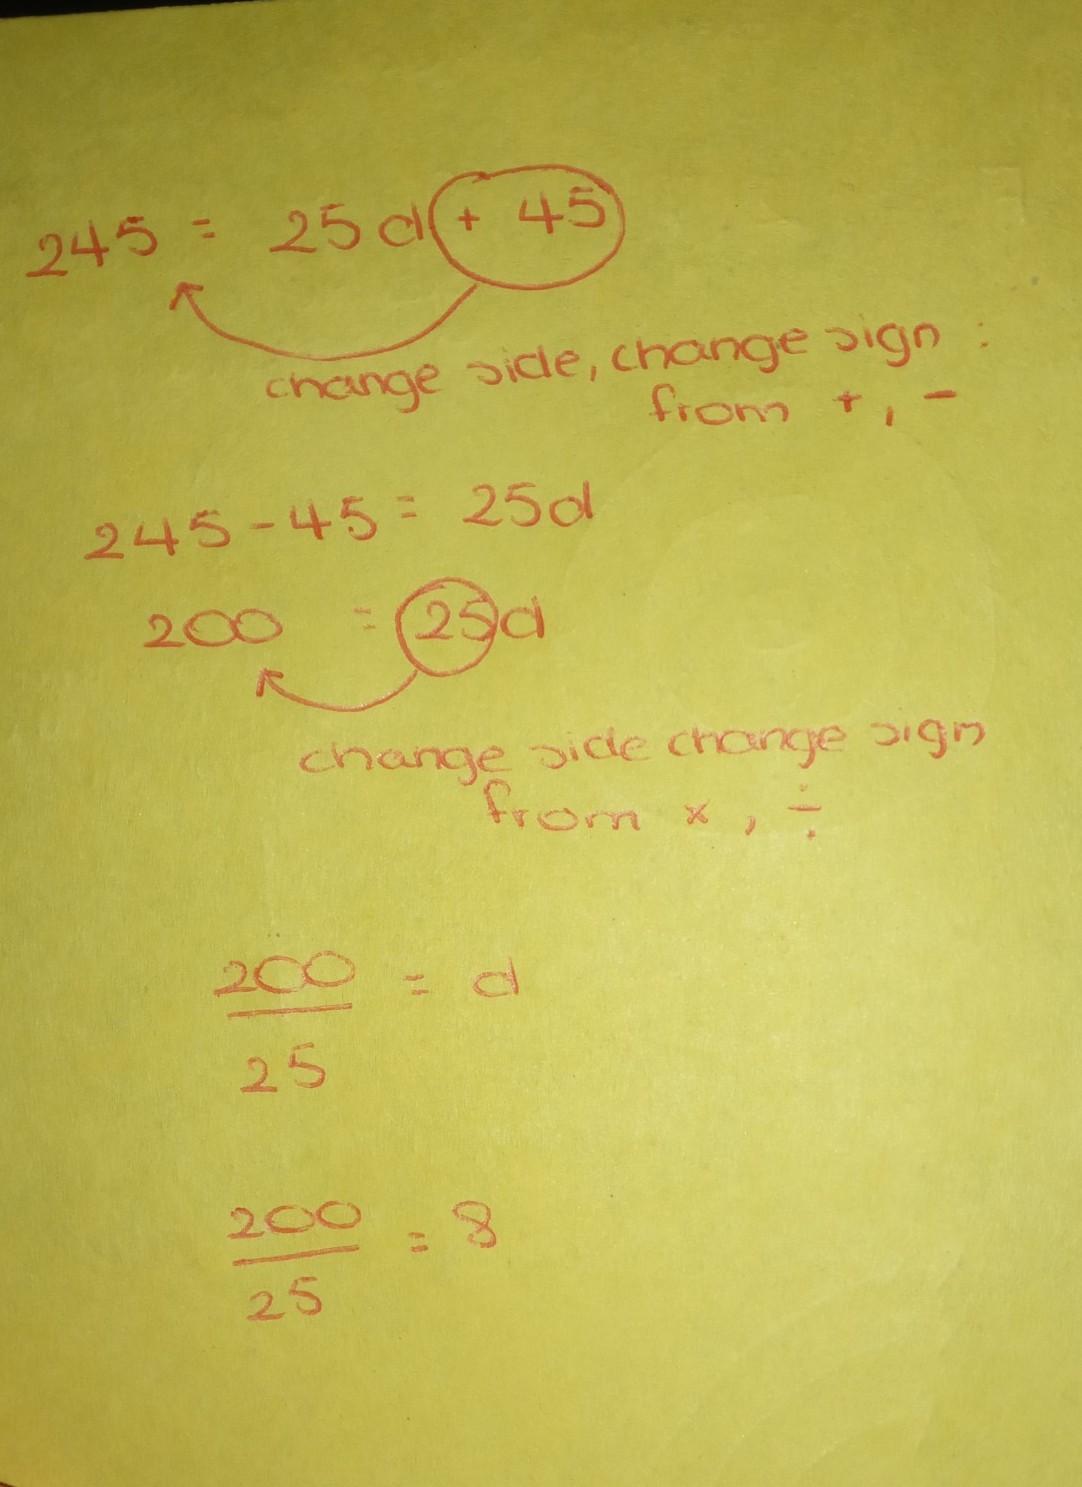 245 = 25d + 45
change side, change sign :
from +, -
245 - 45 = 25d
200 = 25d
change side change sign
from ×, ÷
200
25
= d
200
25
= 8